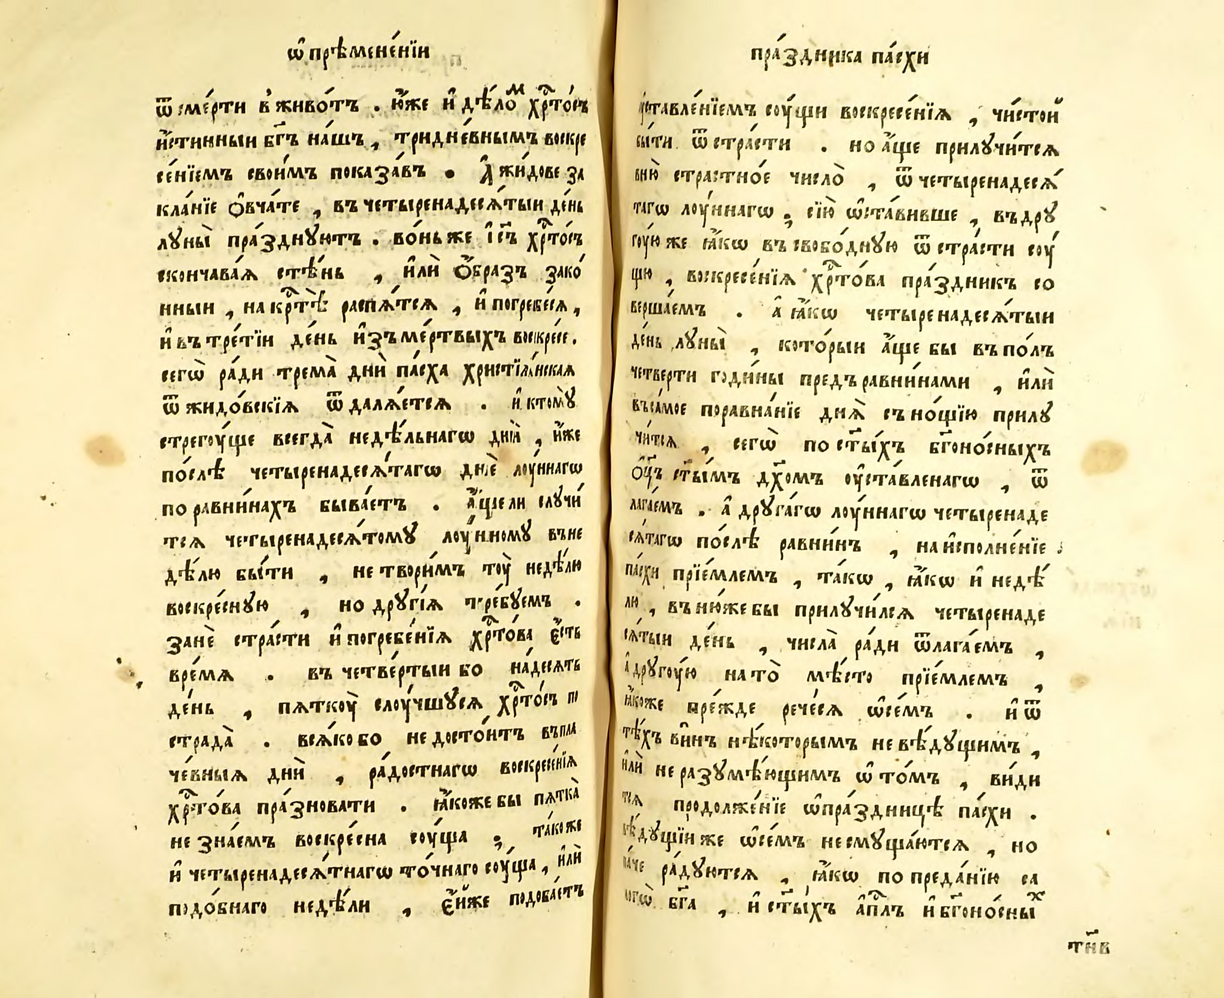 ѡ҆ прѣмене́нїи
ѿ сме́рти в живо́тъ . ю҆́же и҆ дѣ́лоⷨ хрⷭ҇то́съ
и҆́стинныи бг҃ъ на́шъ , тридне́внымъ воскре
се́нїемъ свои́мъ показа́въ . А҆ жи́дове за
кла́нїе о҆вча́те , въ четыренадеся́тыи де́нь
луны̀ пра́зднуютъ . во́ньже і҆и҃съ хрⷭ҇то́съ
скончава́ѧ стѣ́нь , и҆лѝ о҆́бразъ зако́
нныи , на крⷭ҇тѣ̀ распѧ́тсѧ , и҆ погребе́сѧ ,
и҆ въ тре́тїи де́нь и҆зъ ме́ртвыхъ воскре́се .
сегѡ̀ ра́ди трема̀ днѝ па́сха христїѧ́нская
ѿ жидо́вскїѧ ѿдалѧ́етсѧ . и҆ ктомꙋ̀
стрегꙋ́ще всегда̀ недѣ́льнагѡ днѝ , и҆́же
по́слѣ четыренадесѧ́тагѡ днѐ лꙋ́ннагѡ
по равни́нахъ быва́етъ . а҆́ще ли слꙋчи́
тсѧ четыренадесѧ́томꙋ лꙋ́нномꙋ въ не
дѣ́лю бы́ти , не твори́мъ тꙋ̀ недѣ́лю
воскре́снꙋю , но дрꙋгі́ѧ тре́бꙋемъ .
занѐ стра́сти и҆ погребе́нїѧ хрⷭ҇то́ва е҆́сть
вре́мѧ . въ четве́ртыи бо на́десѧть
де́нь , пѧткꙋ̀ слꙋ́чшꙋсѧ хрⷭ҇то́съ по
страда̀ . всѧ́ко бо не досто́итъ въ пла
че́вныѧ днѝ , ра́достнагѡ воскресе́нїѧ
хрⷭ҇то́ва пра́зновати . ꙗ҆́коже бы пѧтка̀
не зна́емъ воскре́сна сꙋ́ща ; та́коже
и҆ четыренадесѧ́тнагѡ то́чнаго сꙋ́ща , и҆лѝ
подо́бнаго недѣ́ли , е҆́йже подоба́етъ
пра́здника па́схи
ᲂу҆ставле́нїемъ сꙋ́щи воскресе́нїѧ , чи́стой
бы́ти ѿ стра́сти . но а҆́ще прилꙋчи́тсѧ
вню̀ стра́тное число̀ , ѿ четыренадесѧ́
тагѡ лꙋ́ннагѡ ; сїю̀ ѡ҆ста́вивше , въ дрꙋ
гꙋ́ю же ꙗ҆́кѡ въ свобо́днꙋю ѿ стра́сти сꙋ́
щꙋ , воскресе́нїѧ хрⷭ҇то́ва пра́здникъ со
верша́емъ . а҆ ꙗ҆́кѡ четыренадесѧ́тыи
де́нь лꙋны̀ , кото́рыи а҆́ще бы въ по́лъ
че́тверти годи́ны предъ равни́нами , и҆лѝ
въ са́мое поравна́нїе днѧ̀ съ но́щїю прилꙋ
чи́тсѧ , сегѡ̀ по ст҃ы́хъ бг҃оно́сныхъ
ѻ҆ц҃ъ ст҃ы́мъ дх҃омъ ᲂу҆ста́вленагѡ , ѿ
лага́емъ . а҆ дрꙋга́гѡ лꙋ́ннагѡ четыренаде
сѧ́тагѡ по́слѣ равни́нъ , на и҆сполне́нїе
па́схи прїе́млемъ , та́кѡ , ꙗ҆́кѡ и҆ недѣ́
лю , въ ню́же бы прилꙋчи́лсѧ четыренаде
сѧ́тыи де́нь , числа̀ ра́ди ѿлага́емъ ,
а҆ дрꙋгꙋ́ю на то̀ мѣ́сто прїе́млемъ ,
ꙗ҆́коже пре́жде рече́сѧ ѡ҆ се́мъ . и҆ ѿ
тѣ́хъ ви́нъ нѣ́которымъ не вѣ́дꙋщимъ ,
и҆лѝ не разꙋмѣ́ющимъ ѡ҆ то́мъ , ви́ди
тсѧ продолже́нїе ѡ҆ пра́здницѣ па́схи .
вѣ́дꙋщїи же ѡ҆ се́мъ не смꙋща́ютсѧ , но
па́че ра́дꙋютсѧ , ꙗ҆́кѡ по преда́нїю са
могѡ̀ бг҃а , и҆ ст҃ы́хъ а҆пⷭ҇лъ и҆ бг҃оно́сныⷯ
тн҃в